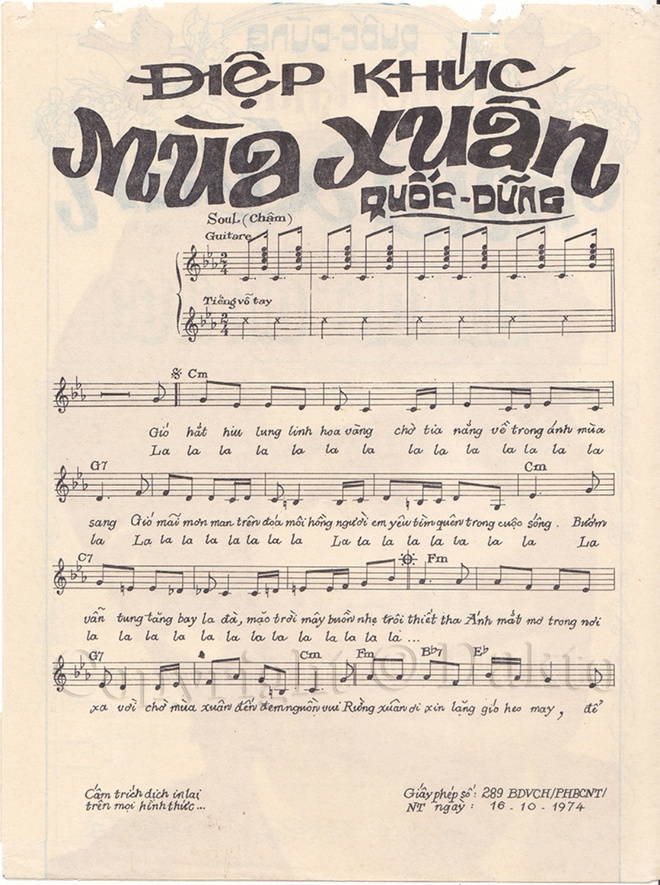 ĐIỆP KHÚC
MÙA XUÂN
QUỐC-DŨNG
Soul (Chậm)
Guitare
Tiếng vỗ tay
Cm
Gió hắt hiu lung linh hoa vàng chờ tia nắng về trong ánh mùa
La la la la la la la la la la la la la
G7 Cm
sang Gió mãi mơn man trên đóa môi hồng người em yêu tìm quên trong cuộc sống. Bướm
la La la la la la la la La la la la la la la la La
C7 Fm
vẫn tung tăng bay la đà, mặc trời mây buồn nhẹ trôi thiết tha Ánh mắt mơ trong nơi
la la la la la la la la la la la la la la ...
G7 Cm Fm Bb7 Eb
xa vời chờ mùa xuân đến đem nguồn vui Rừng xuân ơi xin lặng gió heo may, để
Copyright © Dakto
Cấm trích dịch in lại
trên mọi hình thức...
Giấy phép số: 289 BDVCH/PHBCNT/
NT ngày: 16.10.1974